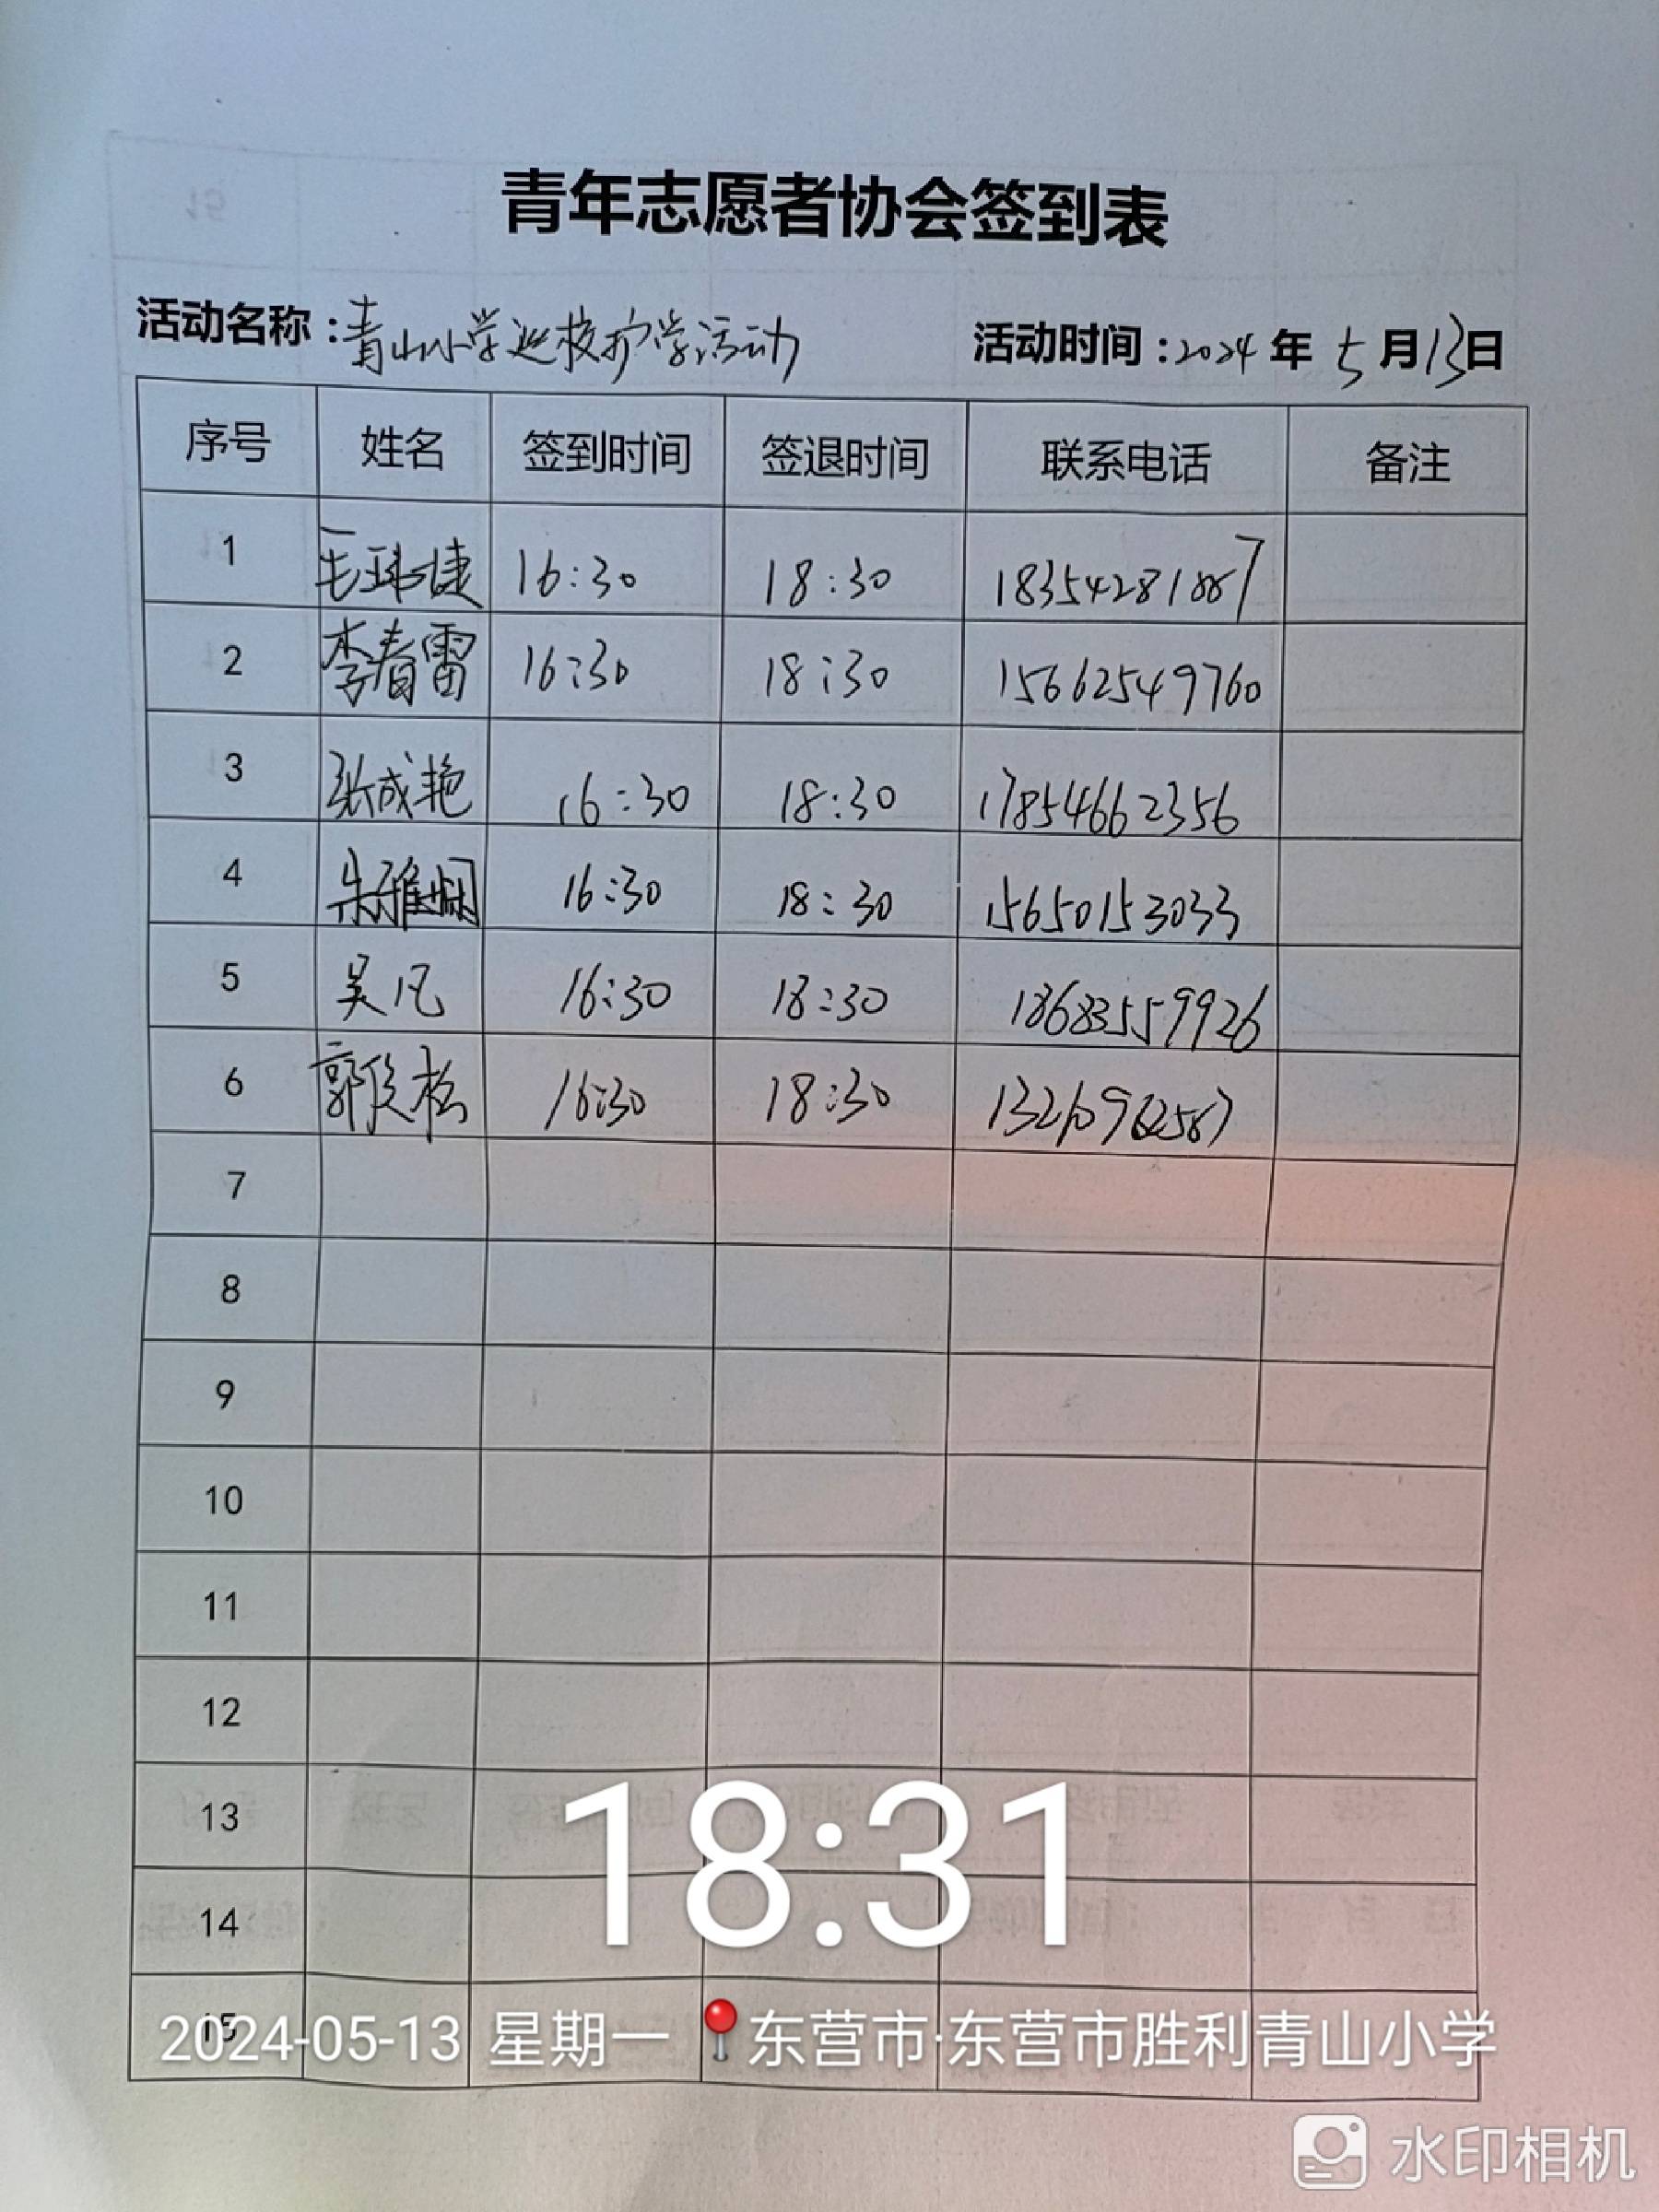 青年志愿者协会签到表
活动名称：青山小学巡校护学活动 活动时间：2024年5月13日
序号 姓名 签到时间 签退时间 联系电话 备注
1 毛琭婕 16:30 18:30
2 李春雷 16:30 18:30 15662549760
3 张成艳 16:30 18:30 17854662356
4 朱雅娴 16:30 18:30 15650153033
5 吴凡 16:30 18:30 18683559926
6 郭俊松 16:30 18:30
7
8
9
10
11
12
13
14
15
18:31
2024-05-13 星期一 东营市·东营市胜利青山小学
水印相机